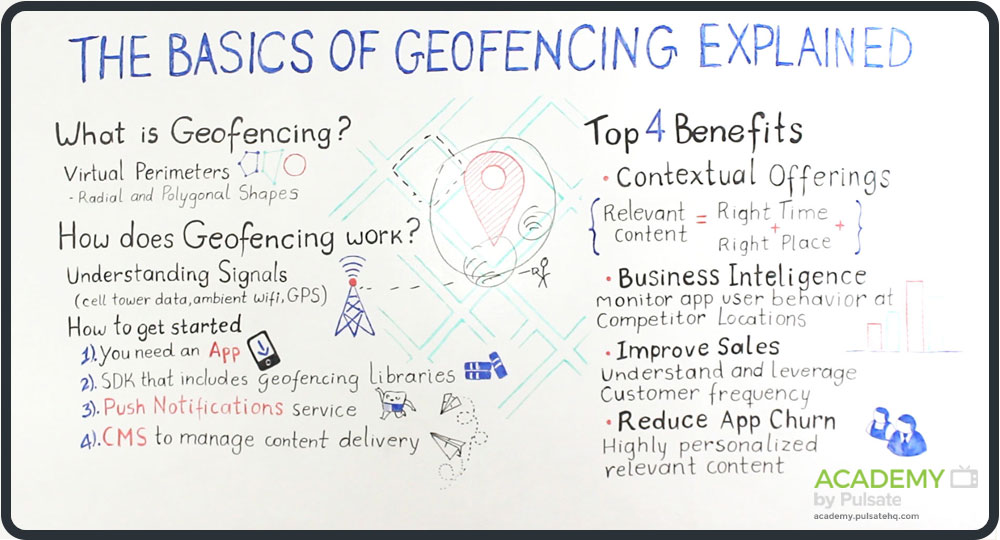 THE BASICS OF GEOFENCING EXPLAINED
What is Geofencing?
Virtual Perimeters
- Radial and Polygonal Shapes
How does Geofencing work?
Understanding Signals
(cell tower data, ambient wifi, GPS)
How to get started
1). You need an App
2). SDK that includes geofencing libraries
3). Push Notifications service
4). CMS to manage content delivery
Top 4 Benefits
• Contextual Offerings
{Relevant content = Right Time + Right Place +}
• Business Inteligence
Monitor app user behavior at
Competitor Locations
• Improve Sales
Understand and leverage
Customer frequency
• Reduce App Churn
Highly personalized
relevant content
ACADEMY
by Pulsate
academy.pulsatehq.com